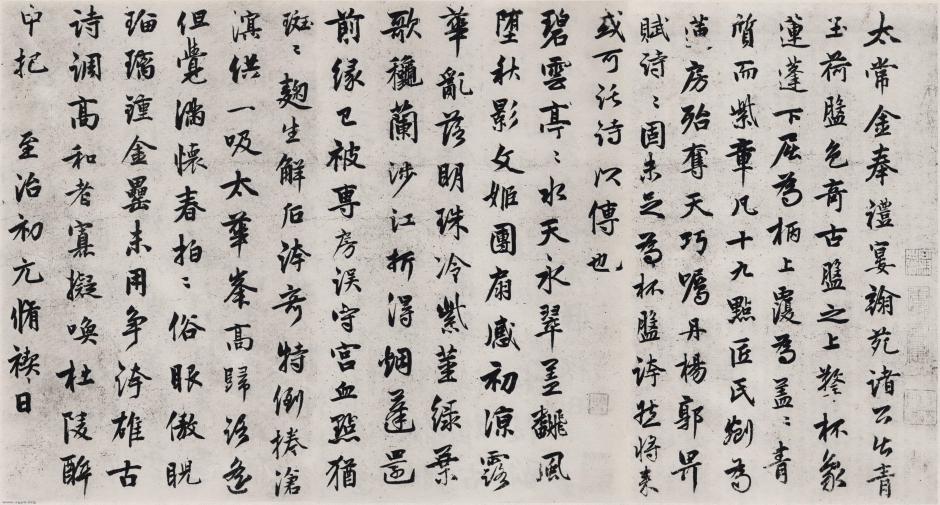 太常金奉禮宴翰苑諸公出青
玉荷盤色奇古盤之上琢杯象
蓮蓬下屈為柄上覆為盖〻青
質而紫章凡十九點匠氏剜為
蓮房殆奪天巧囑丹楊郭畀
賦詩〻固未足為杯盤誇然將来
或可託詩以傳也
碧雲亭〻水天永翠盖飜風
墮秋影文姬團扇感初凉露
華亂落明珠冷紫莖緑葉
歌穐蘭涉江折得蓬還
前緣已被專房误守宮血點猶
斑〻麹生解后誇奇特倒捲滄
溟供一吸太華峯高歸路遙
但覺滿懷春拍〻俗眼傲睨
瑠璃鍾金罍未用争誇雄古
詩調高和者寡擬喚杜陵醉
印把 至治初元脩禊日